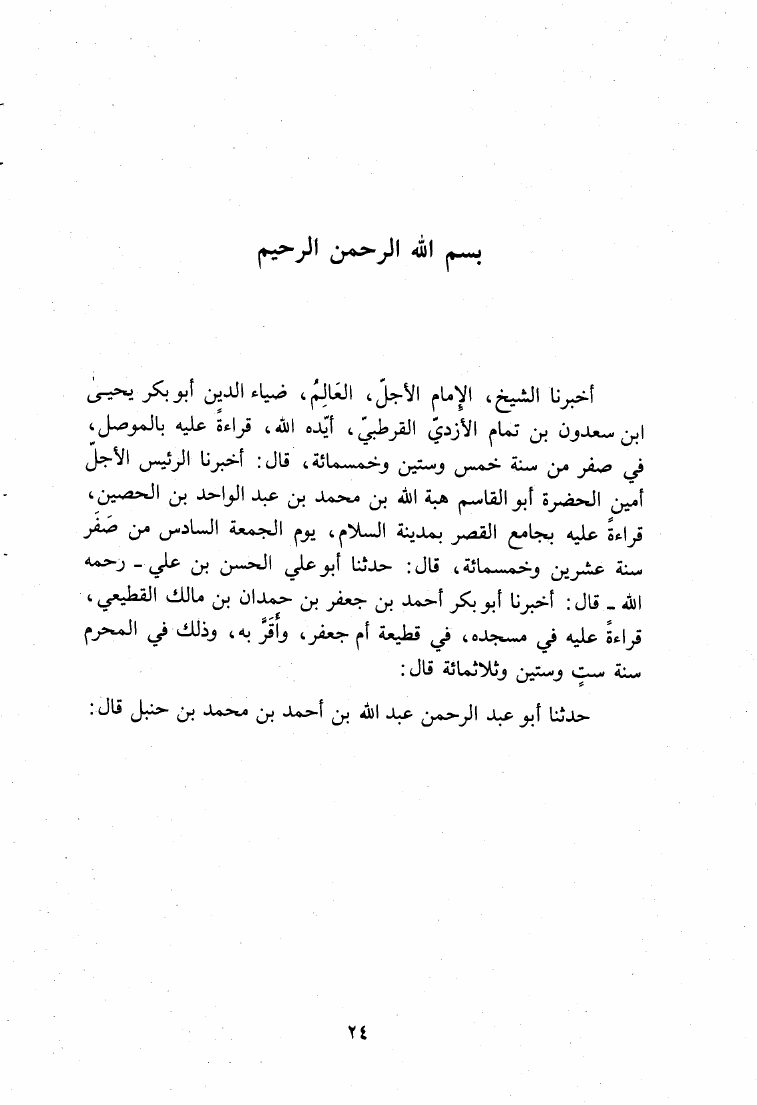 بسم الله الرحمن الرحيم
أخبرنا الشيخ، الإِمام الأجلّ، العَالِمُ، ضياء الدين أبو بكر يحيىٰ
ابن سعدون بن تمام الأزديّ القرطبيّ، أيّده الله، قراءةً عليه بالموصل،
في صفر من سنة خمس وستين وخمسمائة، قال: أخبرنا الرئيس الأجلّ
أمين الحضرة أبو القاسم هبة الله بن محمد بن عبد الواحد بن الحصين،
قراءةً عليه بجامع القصر بمدينة السلام، يوم الجمعة السادس من صَفَر
سنة عشرين وخمسمائة، قال: حدثنا أبو علي الحسن بن علي - رحمه
الله - قال: أخبرنا أبو بكر أحمد بن جعفر بن حمدان بن مالك القطيعي،
قراءةً عليه في مسجده، في قطيعة أم جعفر، وأَقَرَّ به، وذلك في المحرم
سنة ستٍ وستين وثلاثمائة قال:
حدثنا أبو عبد الرحمن عبد الله بن أحمد بن محمد بن حنبل قال:
٢٤